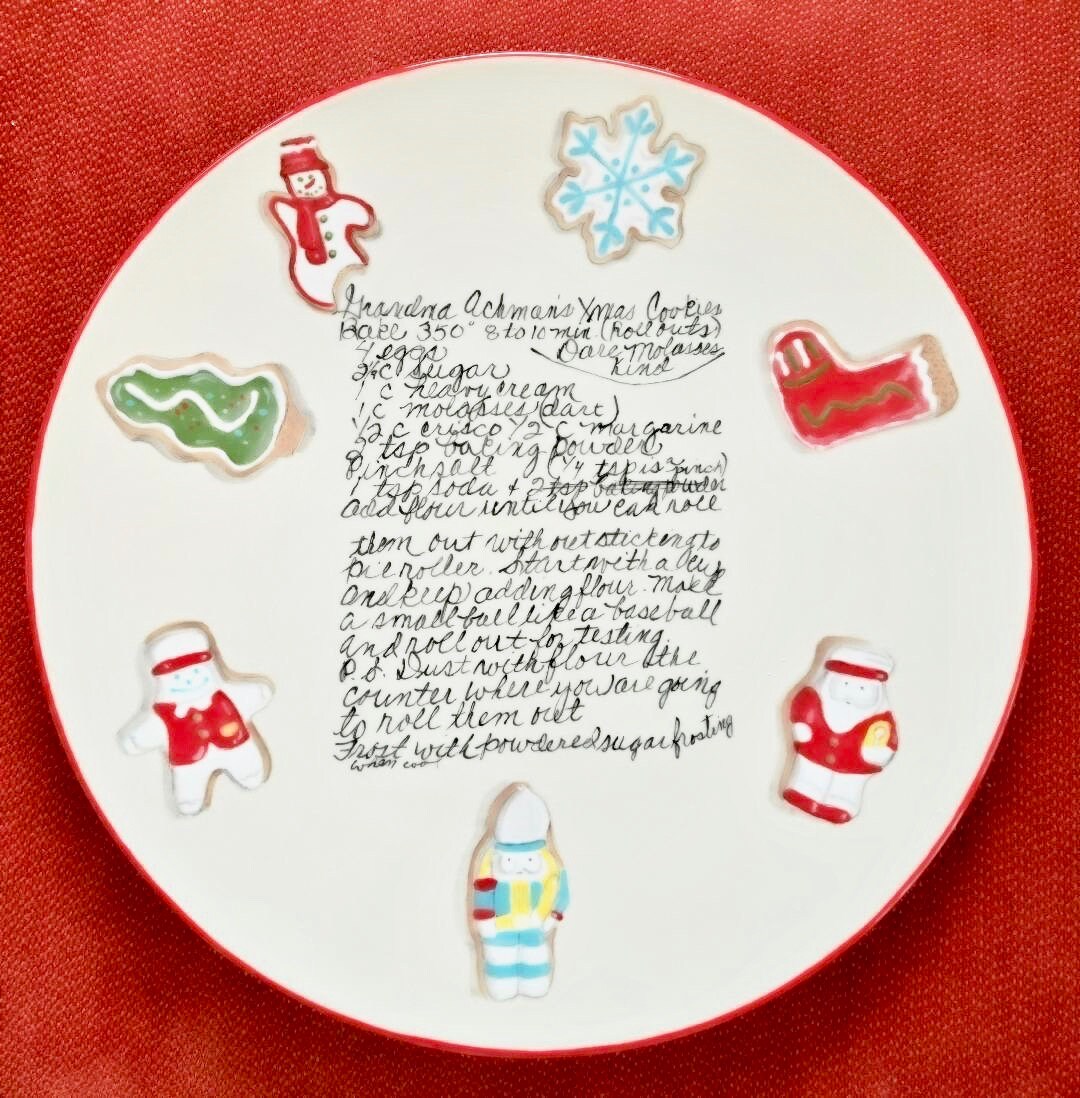 Grandma Ackman's Xmas Cookies
Bake 350° 8 to 10 min. (roll outs)
4 eggs
Dare Molasses
Kind
c sugar
1 c heavy cream
1 c molasses (dart)
1/2 c crisco 1/2 c margarine
2 tsp baking powder
Pinch salt (1/4 tsp is pinch)
1 tsp soda + 2 tsp baking powder
add flour until you can roll
them out without sticking to
pie roller. Start with a
and keep adding flour. Mold
a small ball like a baseball
and roll out for testing.
P.S. Dust with flour the
counter where you are going
to roll them out
Frost with powdered sugar frosting
when cool